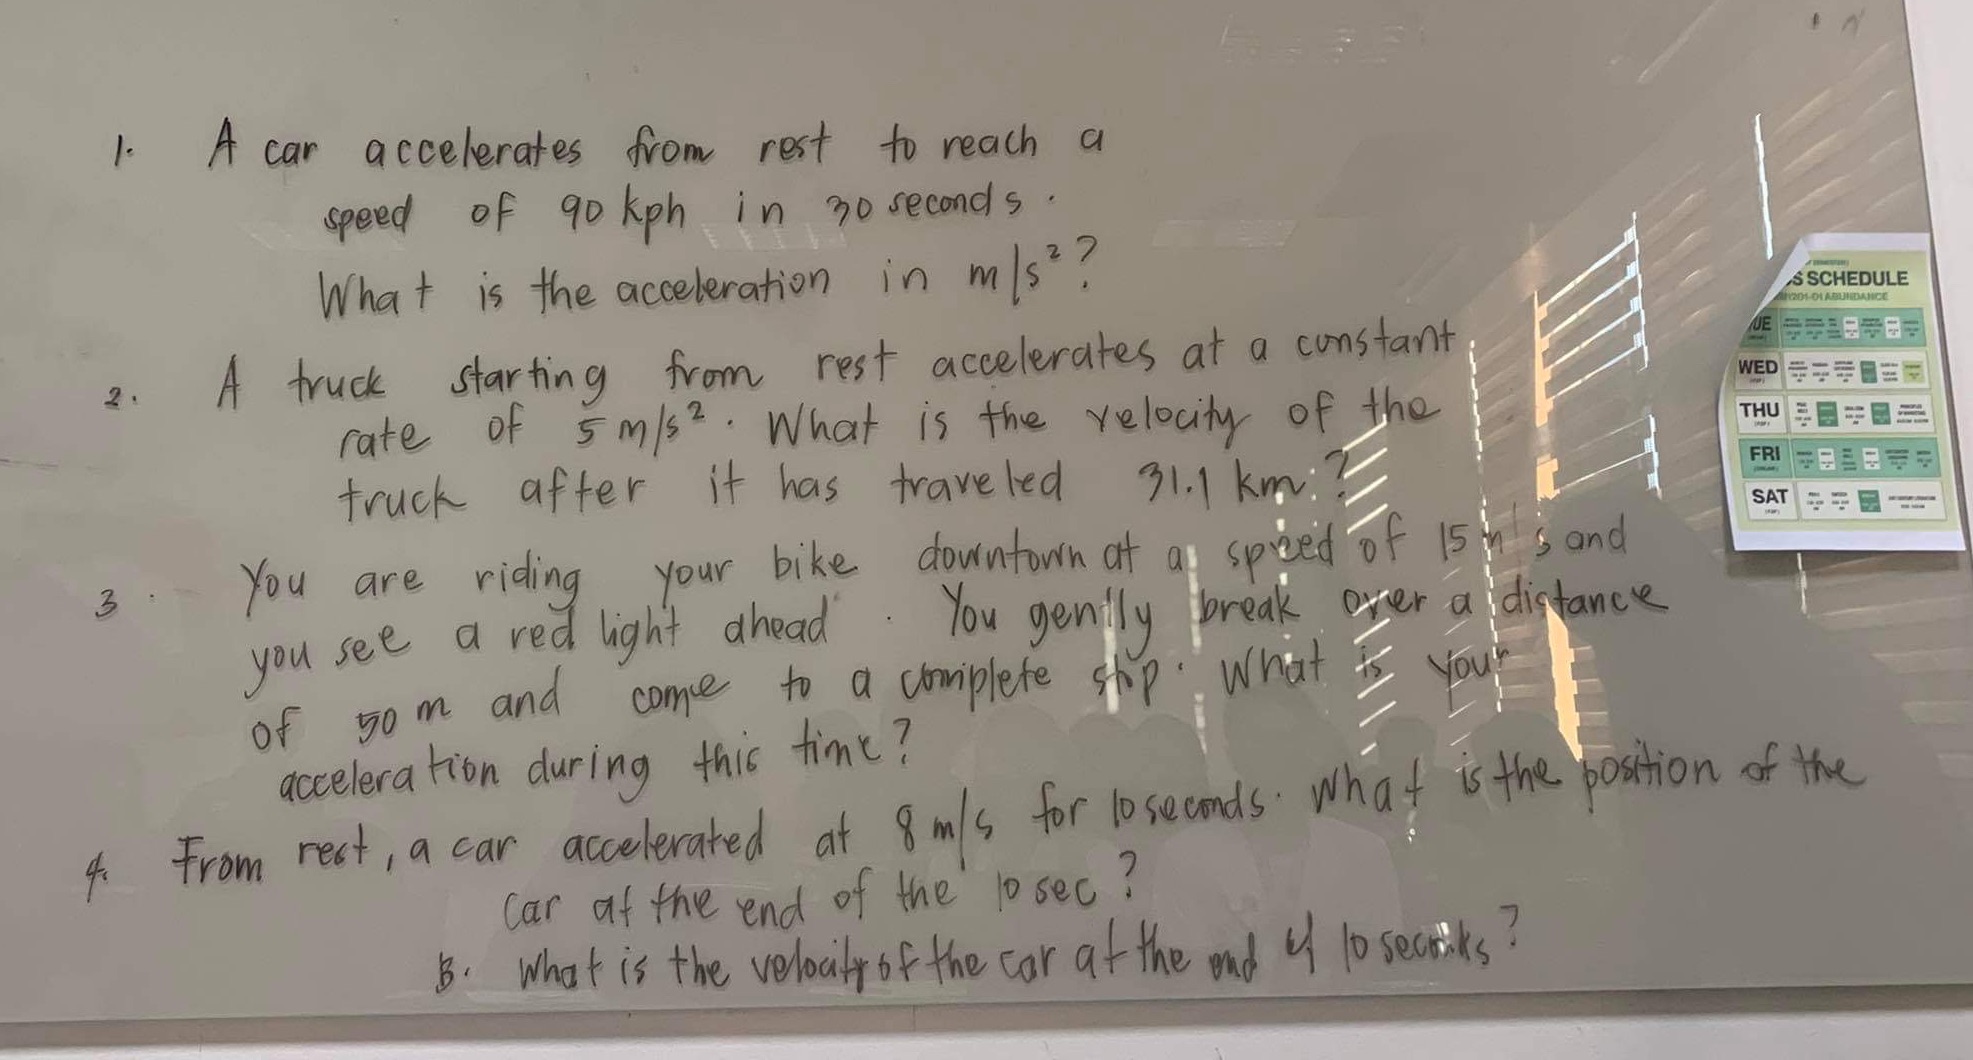 1. A car accelerates from rest to reach a
speed of 90 kph in 30 seconds.
What is the acceleration in m/s²?
2. A truck starting from rest accelerates at a constant
rate of 5 m/s². What is the velocity of the
truck after it has traveled 31.1 km.?
3. You are riding your bike downtown at a speed of 15 m/s and
you see a red light ahead. You gently break over a distance
of 50 m and come to a complete stop. What is your
acceleration during this time?
4. From rest, a car accelerated at 8 m/s for 10 seconds. What is the position of the
car at the end of the 10 sec?
B. What is the velocity of the car at the end of 10 seconds?
S SCHEDULE
ABUNDANCE
UE
WED
THU
FRI
SAT